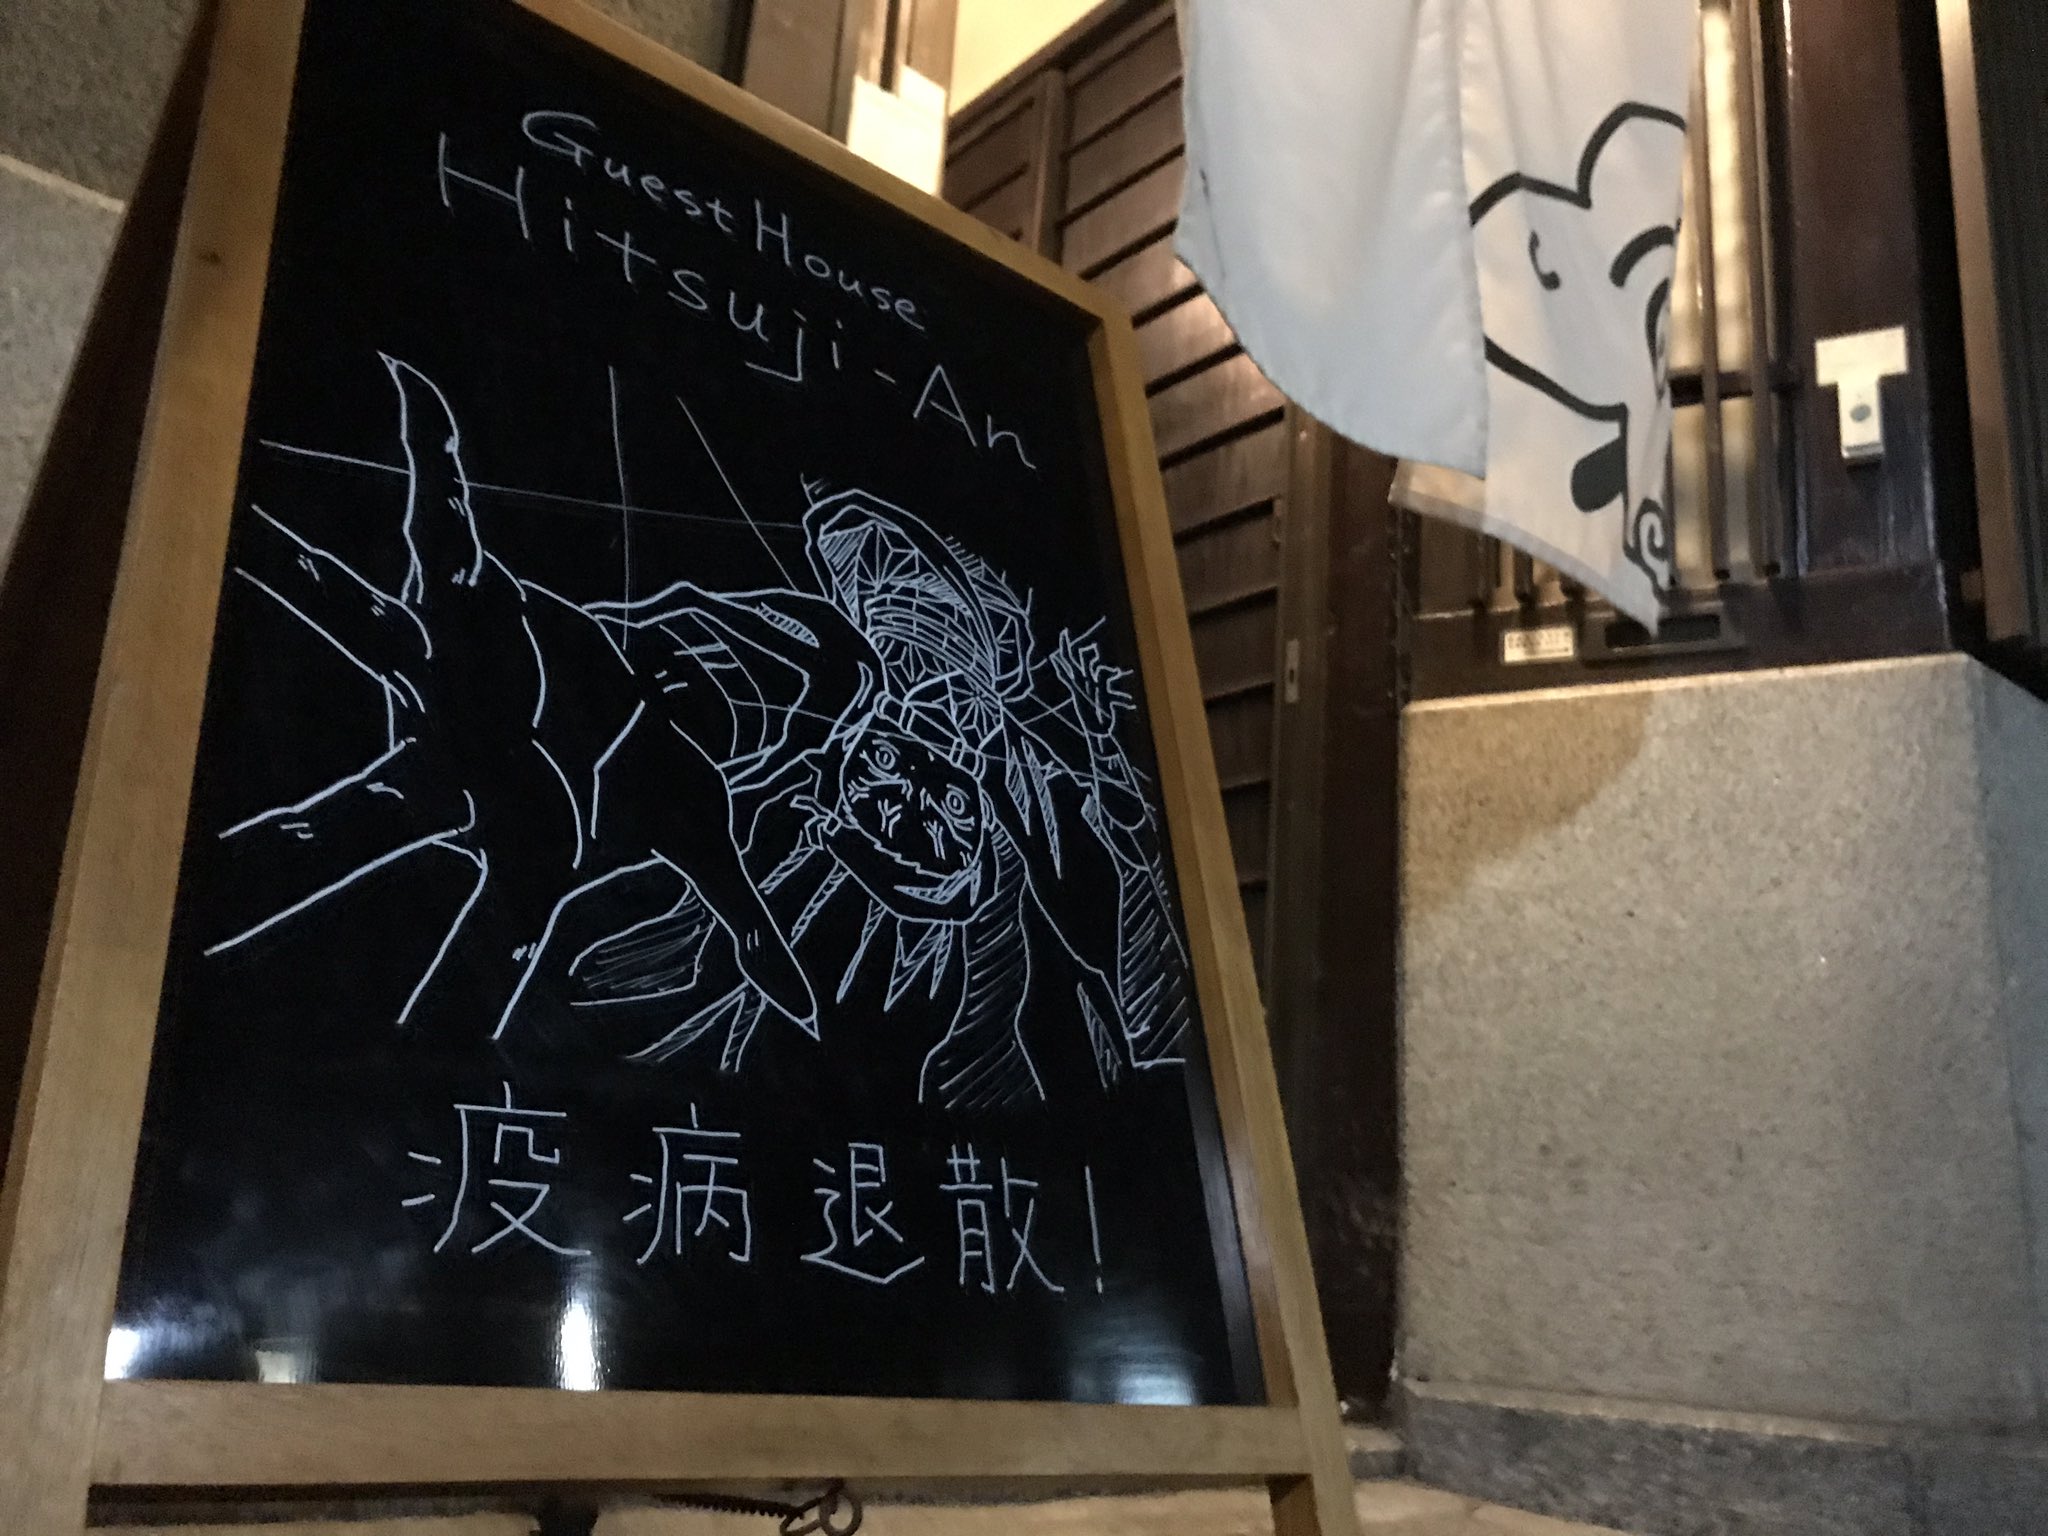 Guest House
Hitsuji-An
疫病退散!